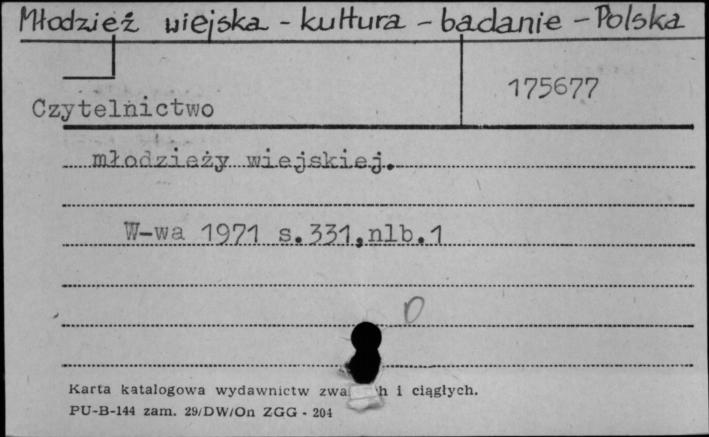 Młodzież wiejska - kultura - badanie - Polska
175677
Czytelnictwo
młodzieży wiejskiej.
W-wa 1971 s.331,nlb.1
Karta katalogowa wydawnictw i ciągłych.
PU-B-144 zam. 29/DW/On ZGG - 204